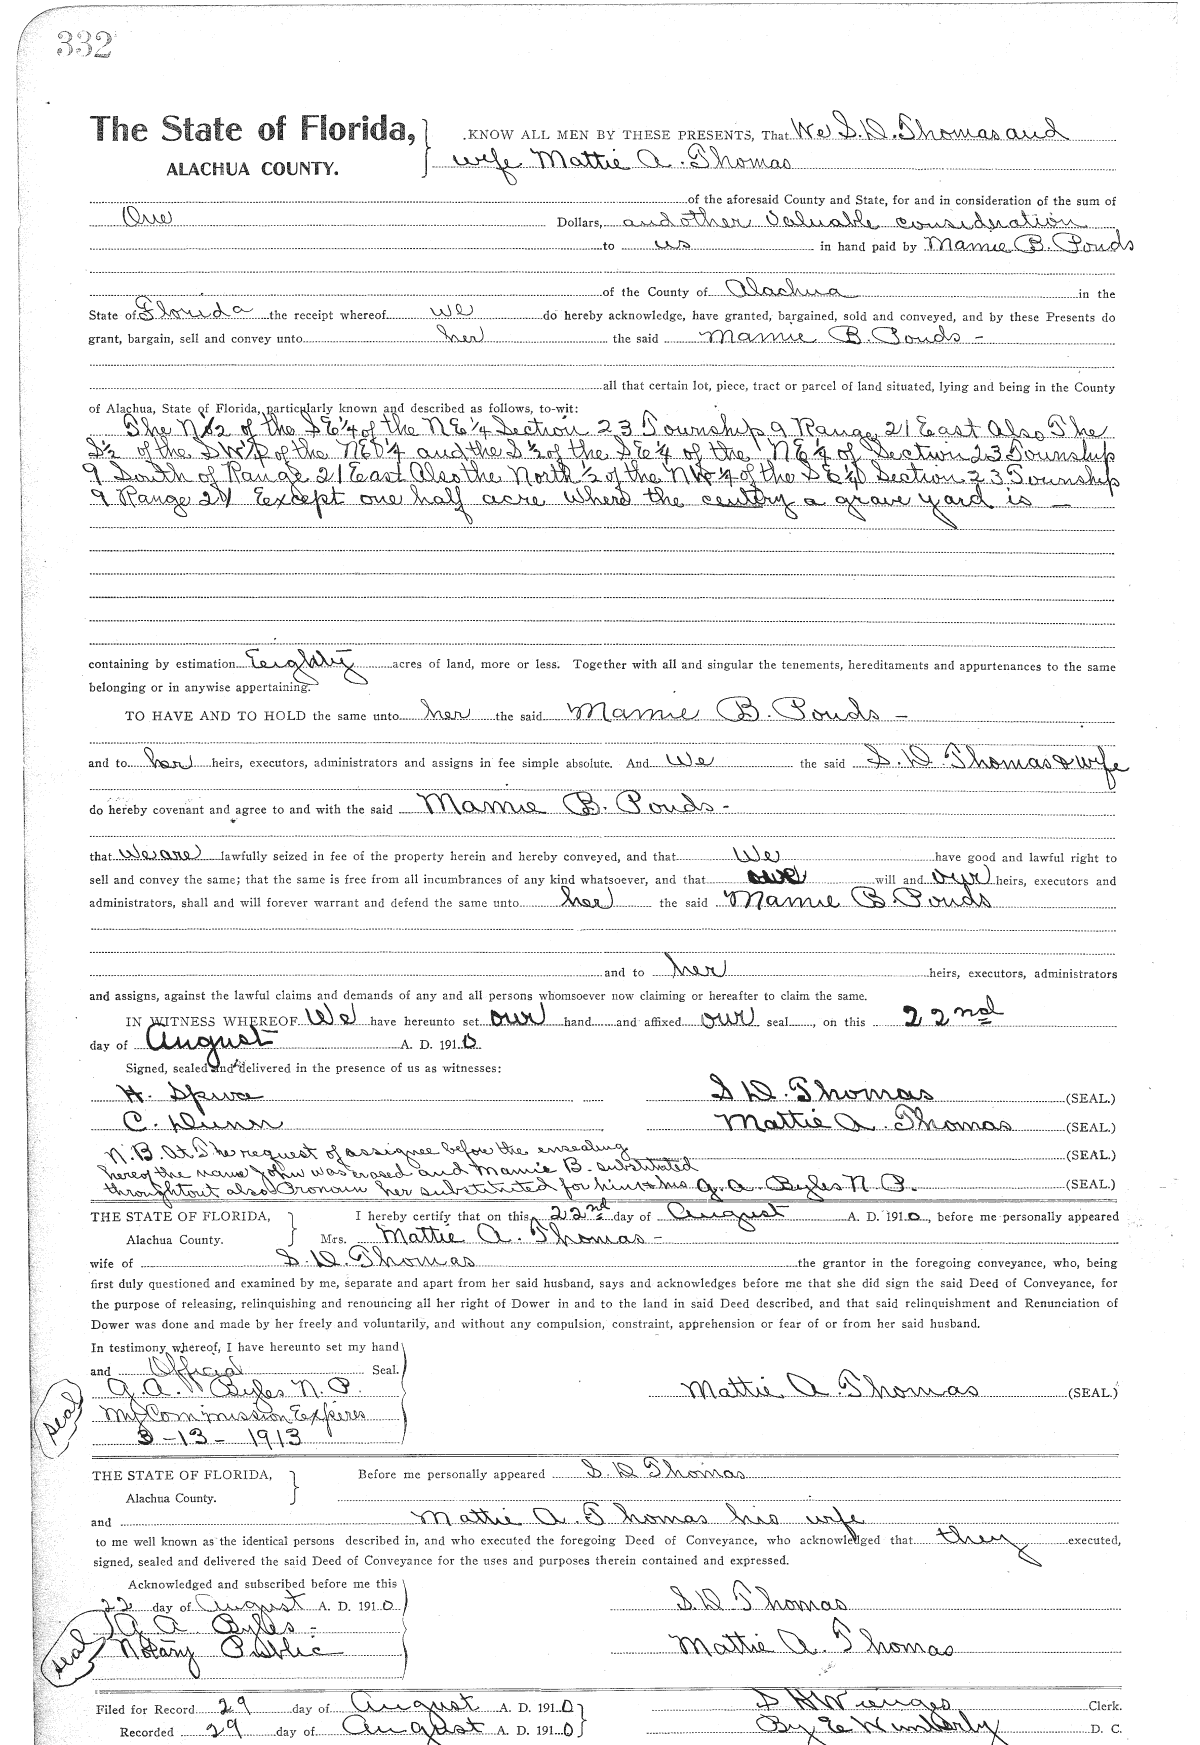 332
The State of Florida, KNOW ALL MEN BY THESE PRESENTS, That We S. D. Thomas and
ALACHUA COUNTY. wife Mattie A. Thomas
of the aforesaid County and State, for and in consideration of the sum of
One Dollars, and other Valuable consideration
to us in hand paid by Mamie B. Ponds
of the County of Alachua in the
State of Florida the receipt whereof we do hereby acknowledge, have granted, bargained, sold and conveyed, and by these Presents do
grant, bargain, sell and convey unto her the said Mamie B. Ponds -
all that certain lot, piece, tract or parcel of land situated, lying and being in the County
of Alachua, State of Florida, particularly known and described as follows, to-wit:
The N 1/2 of the S E 1/4 of the N E 1/4 Section 23 Township 9 Range 21 East Also The
S 1/2 of the SW 1/4 of the NE 1/4 and the S 1/2 of the S E 1/4 of the N E 1/4 of Section 23 Township
9 South of Range 21 East Also the North 1/2 of the NW 1/4 of the S E 1/4 Section 23 Township
9 Range 21 Except one half acre where the a grave yard is —
containing by estimation Eeighty acres of land, more or less. Together with all and singular the tenements, hereditaments and appurtenances to the same
belonging or in anywise appertaining.
TO HAVE AND TO HOLD the same unto her the said Mamie B. Ponds -
and to her heirs, executors, administrators and assigns in fee simple absolute. And We the said S. D Thomas & wife
do hereby covenant and agree to and with the said Mamie B. Ponds -
that We are lawfully seized in fee of the property herein and hereby conveyed, and that We have good and lawful right to
sell and convey the same; that the same is free from all incumbrances of any kind whatsoever, and that will and our heirs, executors and
administrators, shall and will forever warrant and defend the same unto her the said Mamie B. Ponds
and to her heirs, executors, administrators
and assigns, against the lawful claims and demands of any and all persons whomsoever now claiming or hereafter to claim the same.
IN WITNESS WHEREOF We have hereunto set our hand and affixed our seal , on this 22nd
day of August A. D. 1910
Signed, sealed and delivered in the presence of us as witnesses:
H. S. D. Thomas (SEAL.)
C. Dunn Mattie A. Thomas (SEAL.)
N.B. At The request of assignee before the ensealing (SEAL.)
hereof the name John was erased and Mamie B. substituted
throughtout also Pronoun her substituted for him & his G. A. Byles N. P. (SEAL.)
THE STATE OF FLORIDA, I hereby certify that on this 22nd day of August A. D. 1910, before me personally appeared
Alachua County. Mrs. Mattie A. Thomas -
wife of S. D. Thomas the grantor in the foregoing conveyance, who, being
first duly questioned and examined by me, separate and apart from her said husband, says and acknowledges before me that she did sign the said Deed of Conveyance, for
the purpose of releasing, relinquishing and renouncing all her right of Dower in and to the land in said Deed described, and that said relinquishment and Renunciation of
Dower was done and made by her freely and voluntarily, and without any compulsion, constraint, apprehension or fear of or from her said husband.
In testimony whereof, I have hereunto set my hand
and Official Seal.
G. A. Byles N. P. Mattie A. Thomas (SEAL.)
seal
My Commission Expires
3-13-1913
THE STATE OF FLORIDA, Before me personally appeared S. D Thomas
Alachua County.
and Mattie A. Thomas his wife
to me well known as the identical persons described in, and who executed the foregoing Deed of Conveyance, who acknowledged that they executed,
signed, sealed and delivered the said Deed of Conveyance for the uses and purposes therein contained and expressed.
Acknowledged and subscribed before me this
22 day of August A. D. 1910 S. D. Thomas
G A Byles -
seal Notary Public Mattie A. Thomas
Filed for Record 29 day of August A. D. 1910 S H Wienges Clerk.
Recorded 29 day of August A. D. 1910 By E Wimberly D. C.